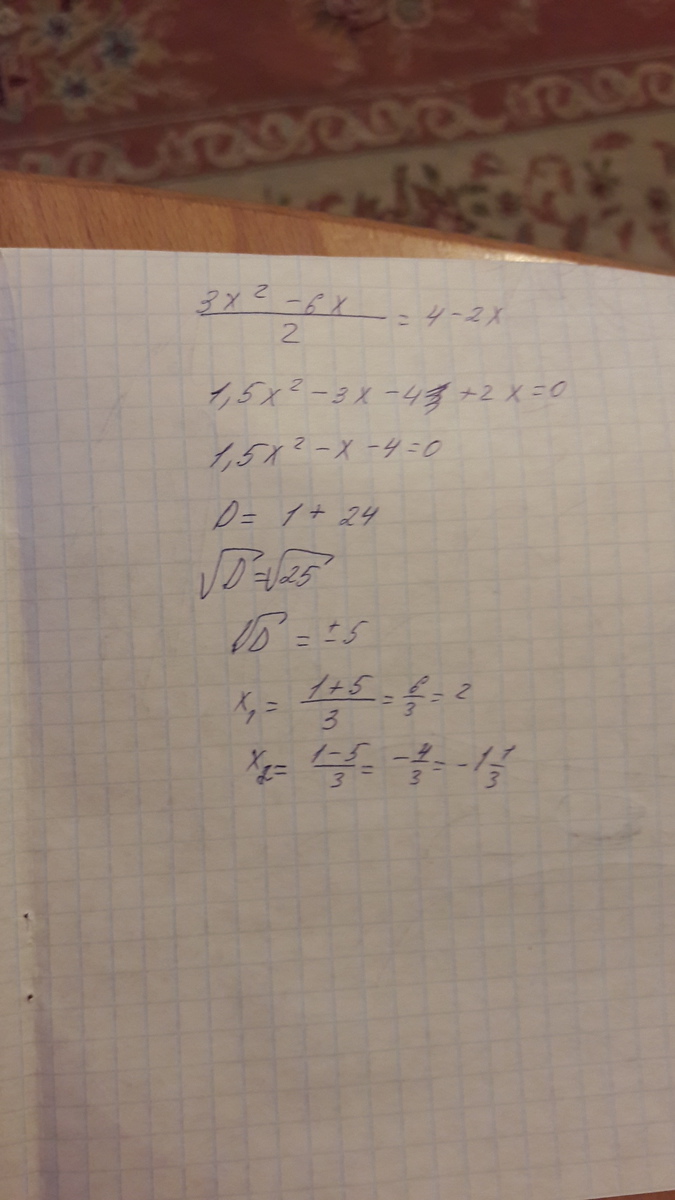 (3x² - 6x)/2 = 4 - 2x
1,5x² - 3x - 4 + 2x = 0
1,5x² - x - 4 = 0
D = 1 + 24
√D = √25
√D = ±5
x₁ = (1+5)/3 = 6/3 = 2
x₂ = (1-5)/3 = -4/3 = -1 1/3